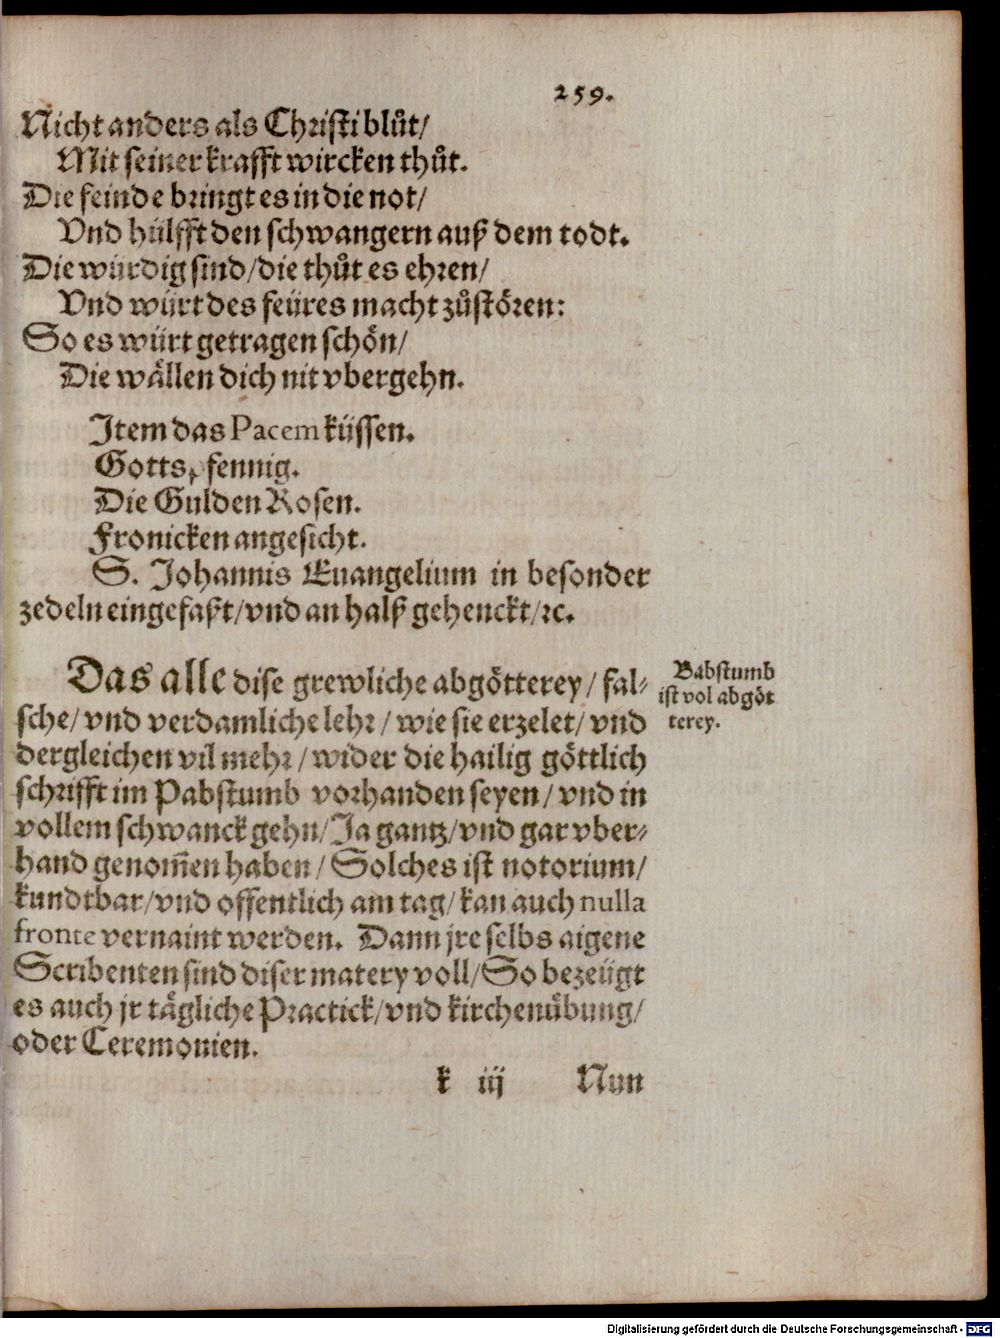 259.
Nicht anders als Christi blůt/
Mit seiner krafft wircken thůt.
Die feinde bringt es in die not/
Vnd hülfft den schwangern auß dem todt.
Die würdig sind/die thůt es ehren/
Vnd würt des feüres macht zůstören:
So es würt getragen schön/
Die wällen dich nit vbergehn.
Item das Pacem küssen.
Gottspfennig.
Die Gulden Rosen.
Fronicken angesicht.
S. Johannis Euangelium in besonder
zedeln eingefaßt/vnd an halß gehenckt/ꝛc.
Das alle dise grewliche abgötterey/ fal-
sche/ vnd verdamliche lehr/ wie sie erzelet/ vnd
dergleichen vil mehr/ wider die hailig göttlich
schrifft im Pabstumb vorhanden seyen/ vnd in
vollem schwanck gehn/Ja gantz/vnd gar vber-
hand genom̃en haben/ Solches ist notorium/
kundtbar/vnd offentlich am tag/ kan auch nulla
fronte vernaint werden. Dann jre selbs aigene
Scribenten sind diser matery voll/So bezeügt
es auch jr tägliche Practick/vnd kirchenübung/
oder Ceremonien.
Babstumb
ist vol abgöt
terey.
k iij Nun
Digitalisierung gefördert durch die Deutsche Forschungsgemeinschaft - DFG